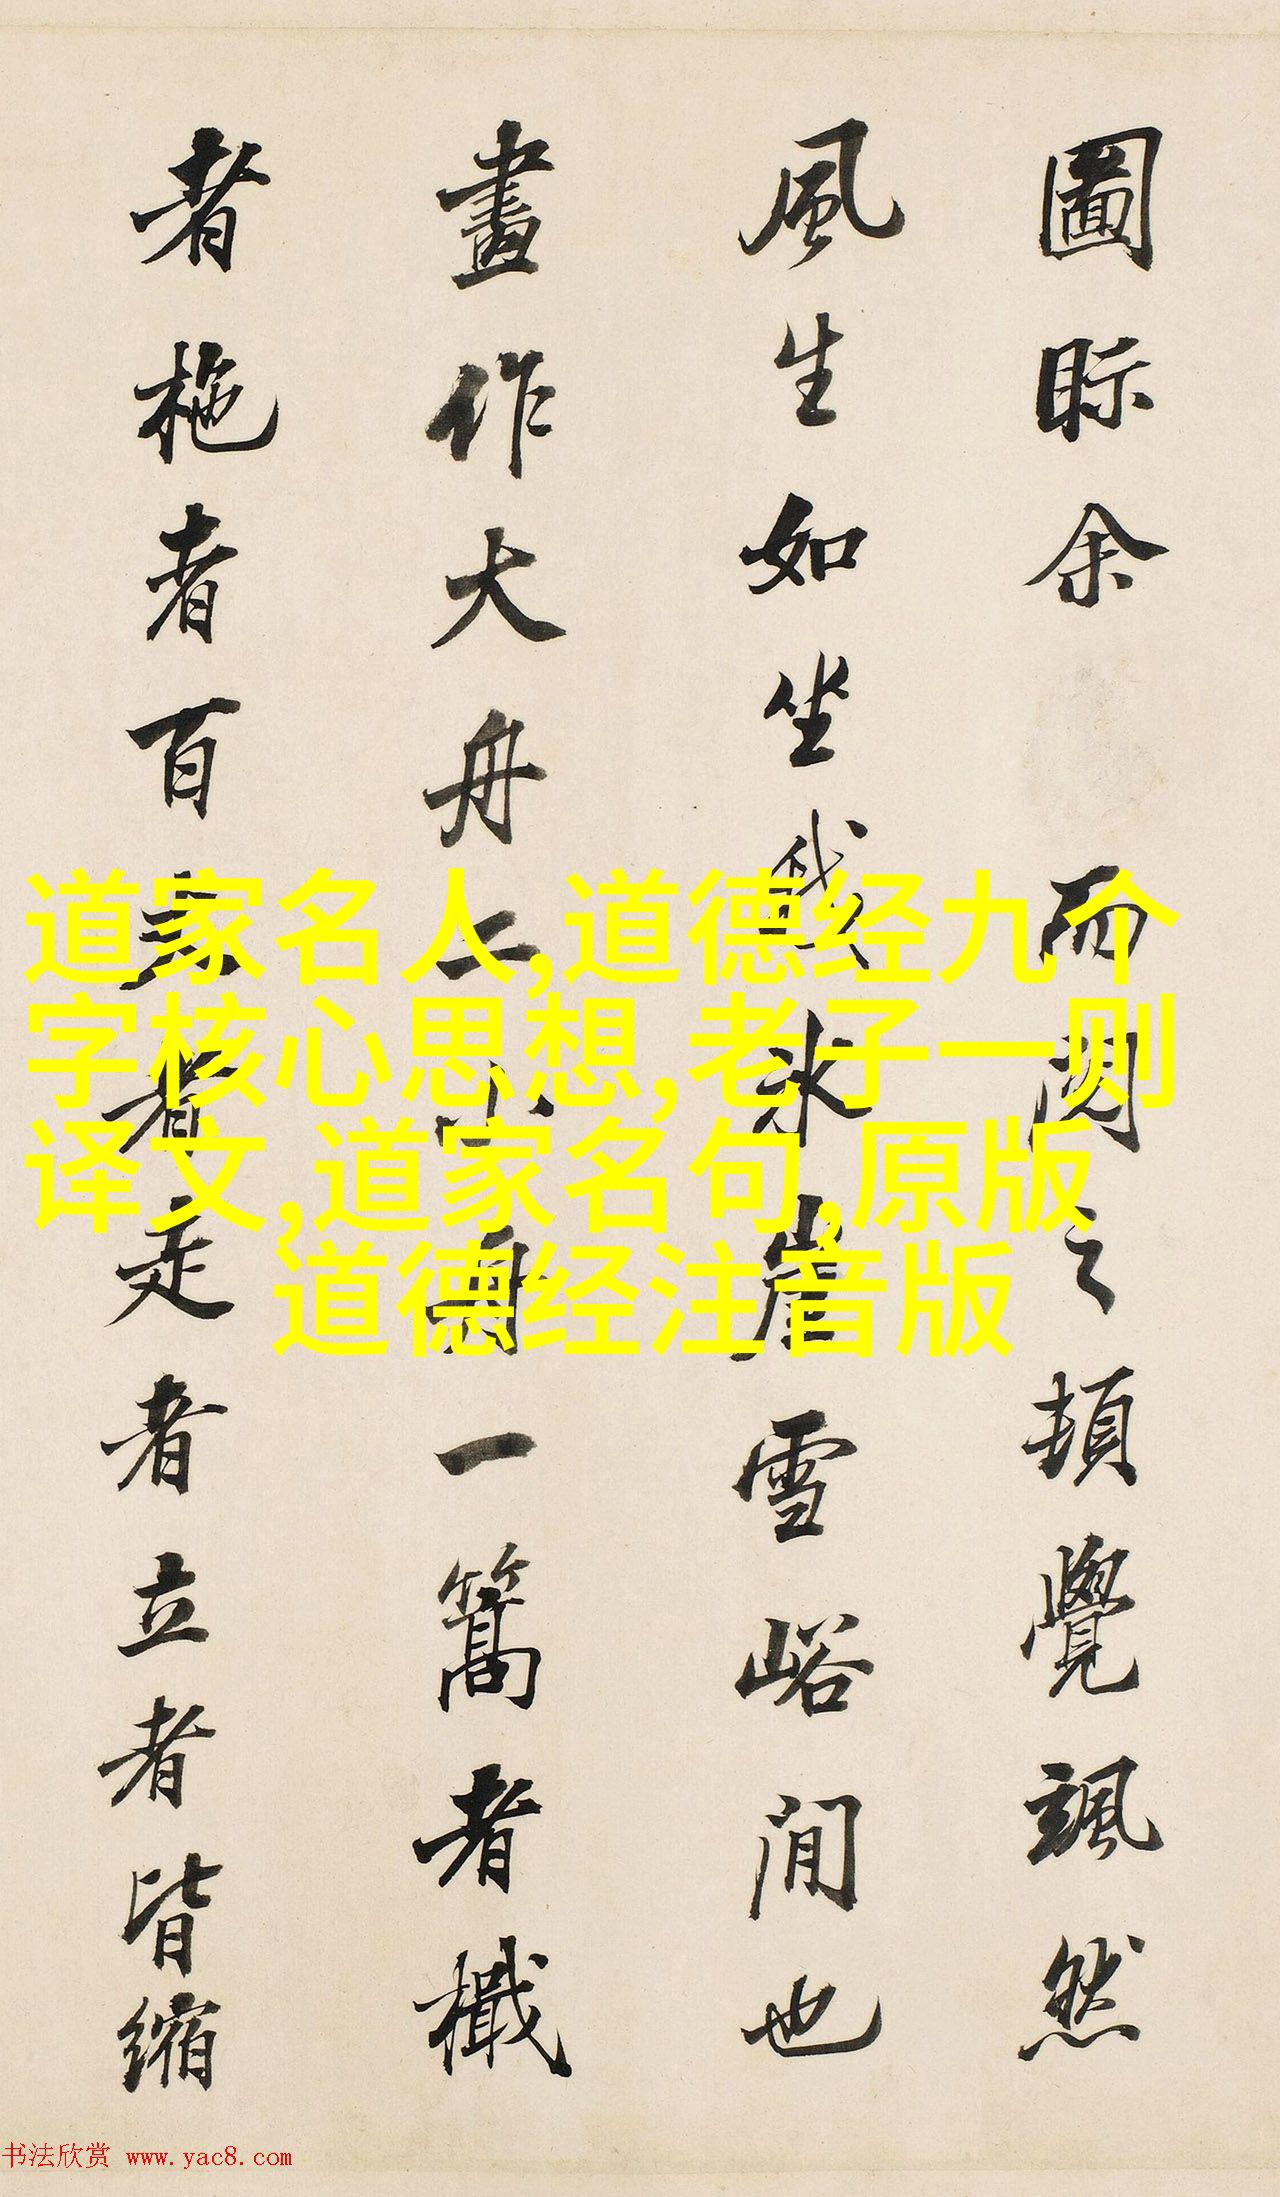 圖眎余而閱之頓覺颯然
風生如坐我氷崖雪峪間也
畫作大舟二小舟一篙者檝
者柂者百丈者走者立者皆縮
道家名人,道德经九个
字核心思想,老子一则
译文,道家名句,原版
道德经注音版
书法欣赏 www.yac8.com